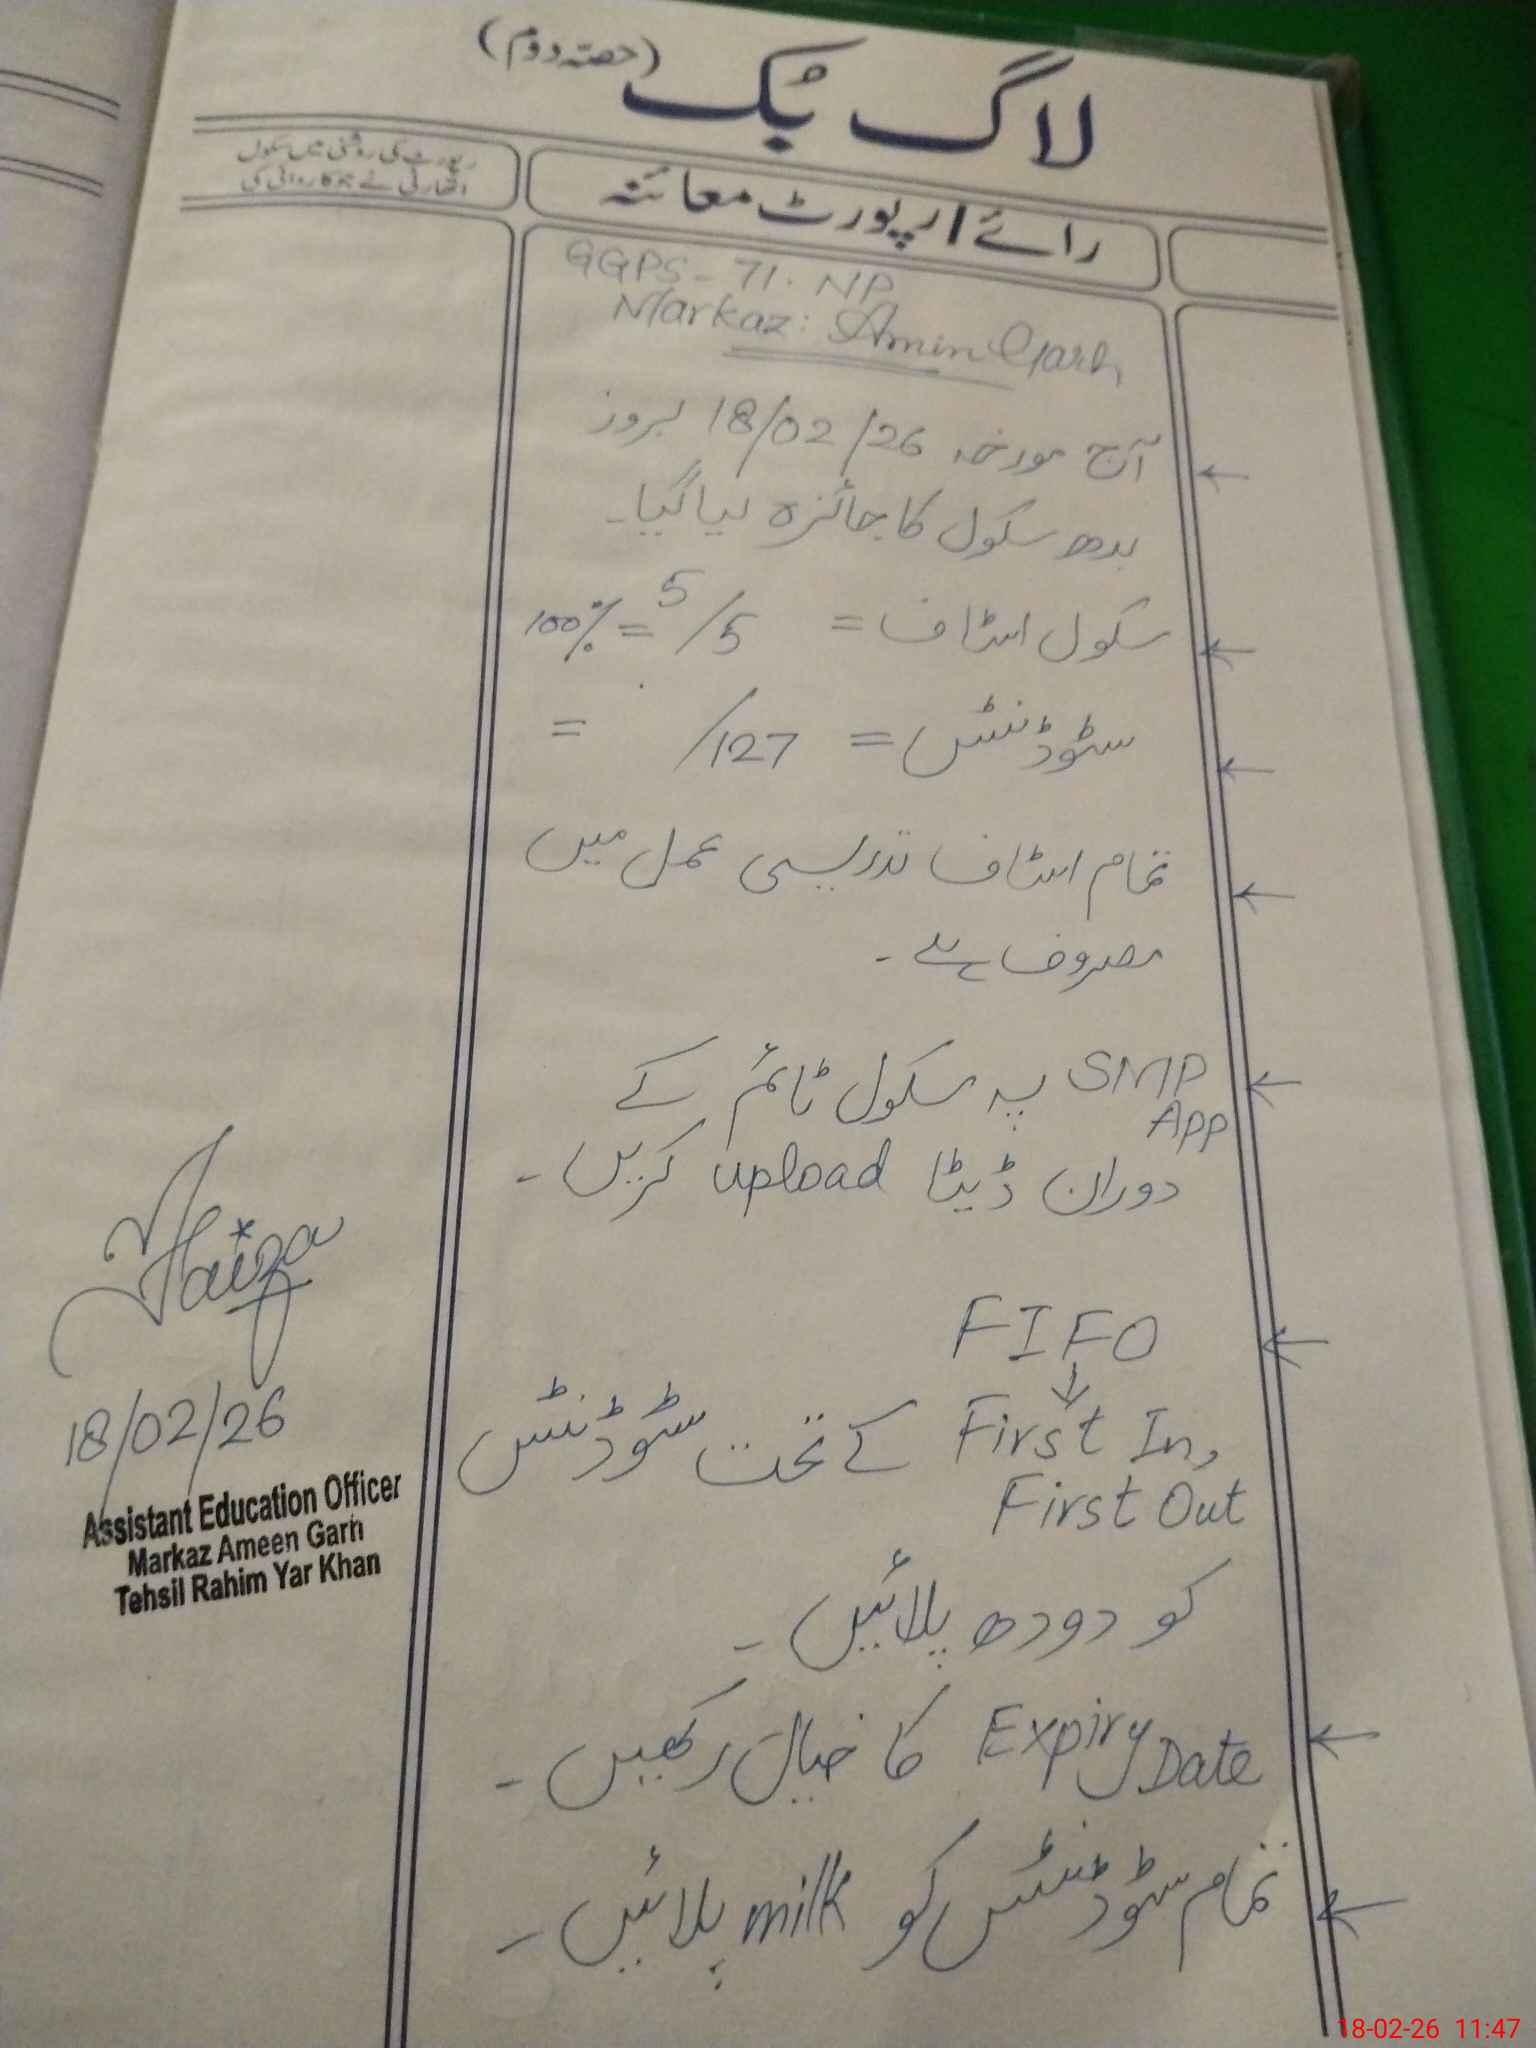 لاگ بُک (حصّہ دوم)
رائے / رپورٹ معائنہ
رپورٹ کی روشنی میں سکول
اتھارٹی نے جو کاروائی کی
GGPS - 71. NP
Markaz: Amin Garh
آج مورخہ 18/02/26 بروز
بدھ سکول کا جائزہ لیا گیا۔
سکول اسٹاف = 5/5 = 100%
سٹوڈنٹس = /127 =
تمام اسٹاف تدریسی عمل میں
مصروف ہے۔
SMP App پہ سکول ٹائم کے
دوران ڈیٹا upload کریں۔
FIFO
↓
First In, First Out کے تحت سٹوڈنٹس
کو دودھ پلائیں۔
Expiry Date کا خیال رکھیں۔
تمام سٹوڈنٹس کو milk پلائیں۔
Faiza
18/02/26
Assistant Education Officer
Markaz Ameen Garh
Tehsil Rahim Yar Khan
18-02-26 11:47